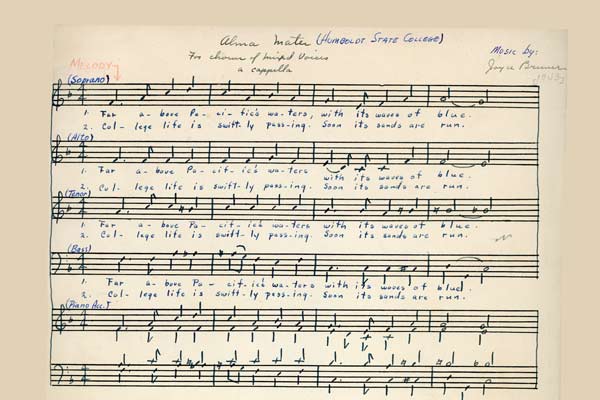 Alma Mater (HUMBOLDT STATE COLLEGE)
For chorus of Mixed Voices
a cappella
Music by:
Joyce
MELODY
(Soprano)
1. Far a-bove Pa-cif-ic's wa-ters, with its waves of blue.
2. Col-lege life is swift-ly pass-ing. Soon its sands are run.
(Alto)
1. Far a-bove Pa-cif-ic's wa-ters with its waves of blue.
2. Col-lege life is swift-ly pass-ing. Soon its sands are run.
(Tenor)
1. Far a-bove Pa-cif-ic's wa-ters with its waves of blue.
2. Col-lege life is swift-ly pass-ing. Soon its sands are run.
(Bass)
1. Far a-bove Pa-cif-ic's wa-ters with its waves of blue.
2. Col-lege life is swift-ly pass-ing. Soon its sands are run.
(Piano Acc.)